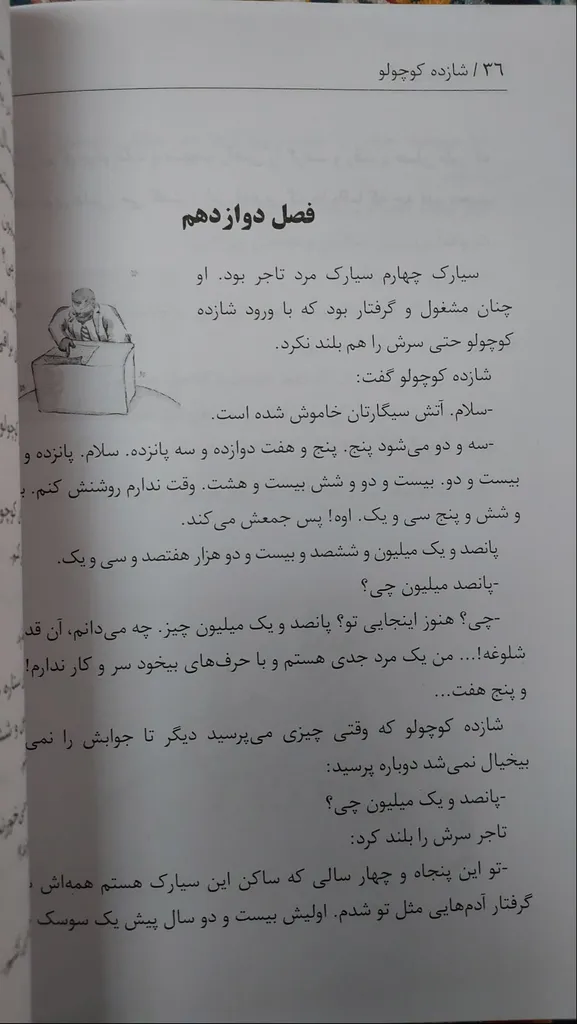 ۳۶ / شازده کوچولو
فصل دوازدهم
سیارک چهارم سیارک مرد تاجر بود. او
چنان مشغول و گرفتار بود که با ورود شازده
کوچولو حتی سرش را هم بلند نکرد.
شازده کوچولو گفت:
-سلام. آتش سیگارتان خاموش شده است.
-سه و دو می‌شود پنج. پنج و هفت دوازده و سه پانزده. سلام. پانزده و
بیست و دو. بیست و دو و شش بیست و هشت. وقت ندارم روشنش کنم.
و شش و پنج سی و یک. اوه! پس جمعش می‌کند.
پانصد و یک میلیون و ششصد و بیست و دو هزار هفتصد و سی و یک.
-پانصد میلیون چی؟
-چی؟ هنوز اینجایی تو؟ پانصد و یک میلیون چیز. چه می‌دانم، آن
شلوغه!... من یک مرد جدی هستم و با حرف‌های بیخود سر و کار ندارم!
و پنج هفت...
شازده کوچولو که وقتی چیزی می‌پرسید دیگر تا جوابش را
بیخیال نمی‌شد دوباره پرسید:
-پانصد و یک میلیون چی؟
تاجر سرش را بلند کرد:
-تو این پنجاه و چهار سالی که ساکن این سیارک هستم همه‌اش
گرفتار آدم‌هایی مثل تو شدم. اولیش بیست و دو سال پیش یک سوسک